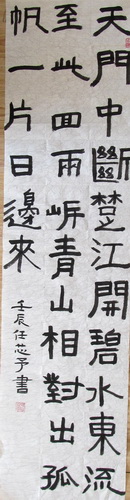 天門中斷楚江開碧水東流
至此回兩岸青山相對出孤
帆一片日邊來
壬辰任芯予書